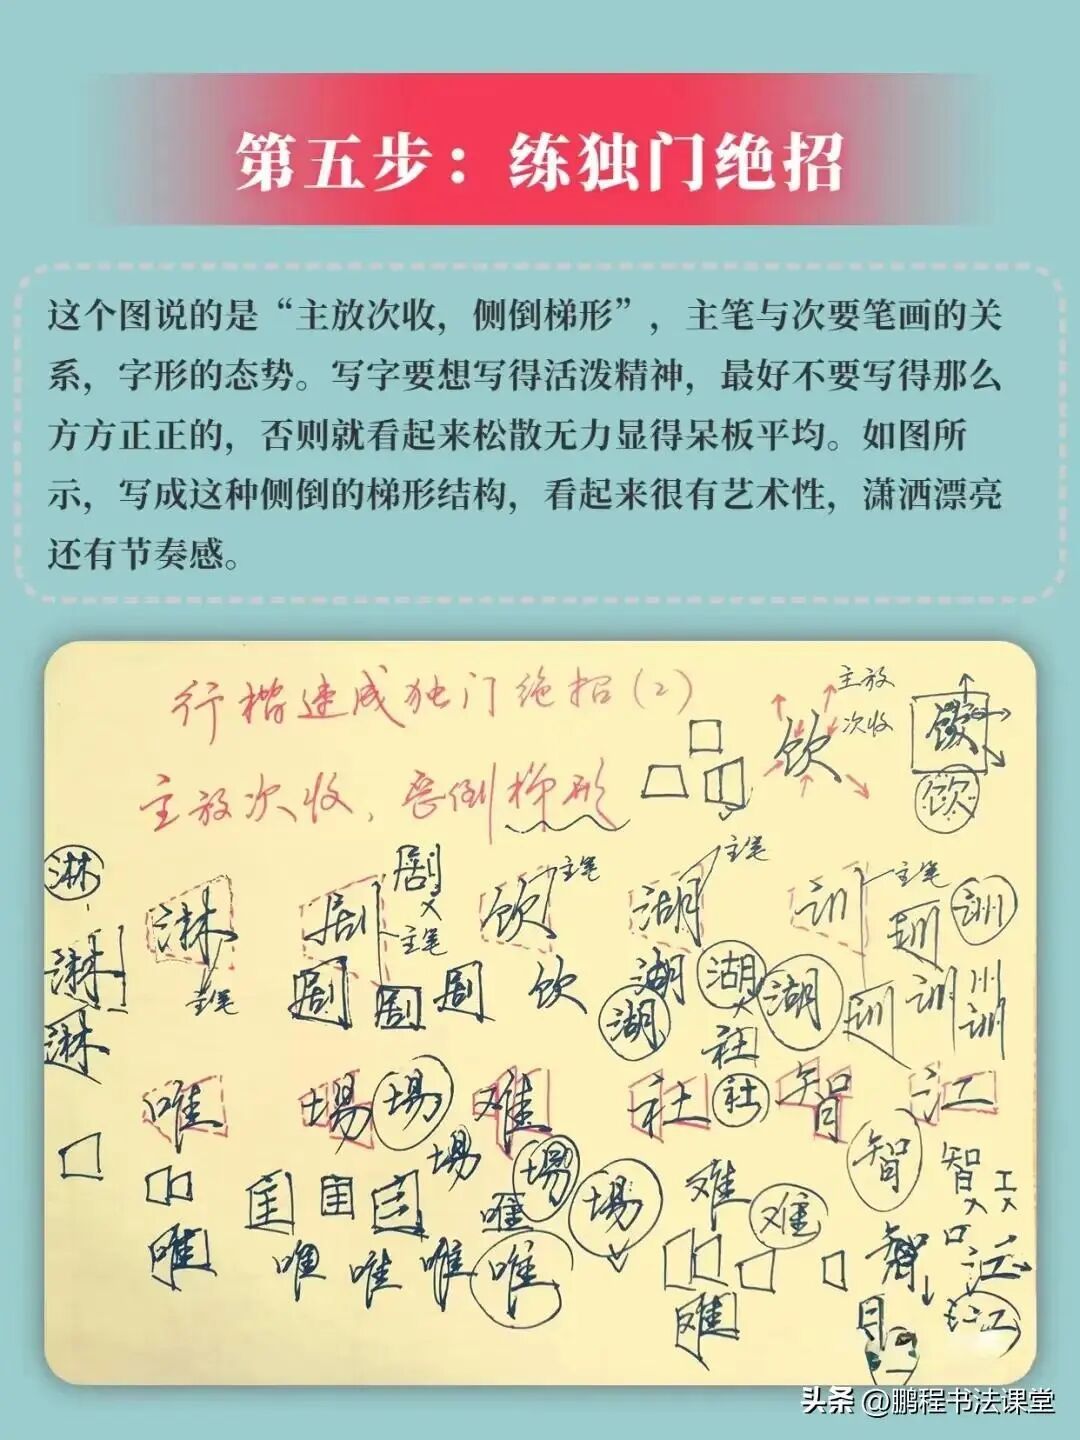 第五步：练独门绝招
这个图说的是“主放次收，侧倒梯形”，主笔与次要笔画的关
系，字形的态势。写字要想写得活泼精神，最好不要写得那么
方方正正的，否则就看起来松散无力显得呆板平均。如图所
示，写成这种侧倒的梯形结构，看起来很有艺术性，潇洒漂亮
还有节奏感。
行楷速成独门绝招(2)
主放
次收
饮 饮
饮
主放次收，倒梯形
淋 剧 主笔 主笔 主笔
淋 剧 饮 湖 训 训 训
主笔 主笔
淋 剧 剧 剧 饮 湖 湖 湖 训 训 州
淋 湖 社 训
唯 場 場 难 社 社 智 江
場 場 場 难 难 智 智 工
唯
唯 唯 唯 唯 唯 智 江
难 江
头条 @鹏程书法课堂